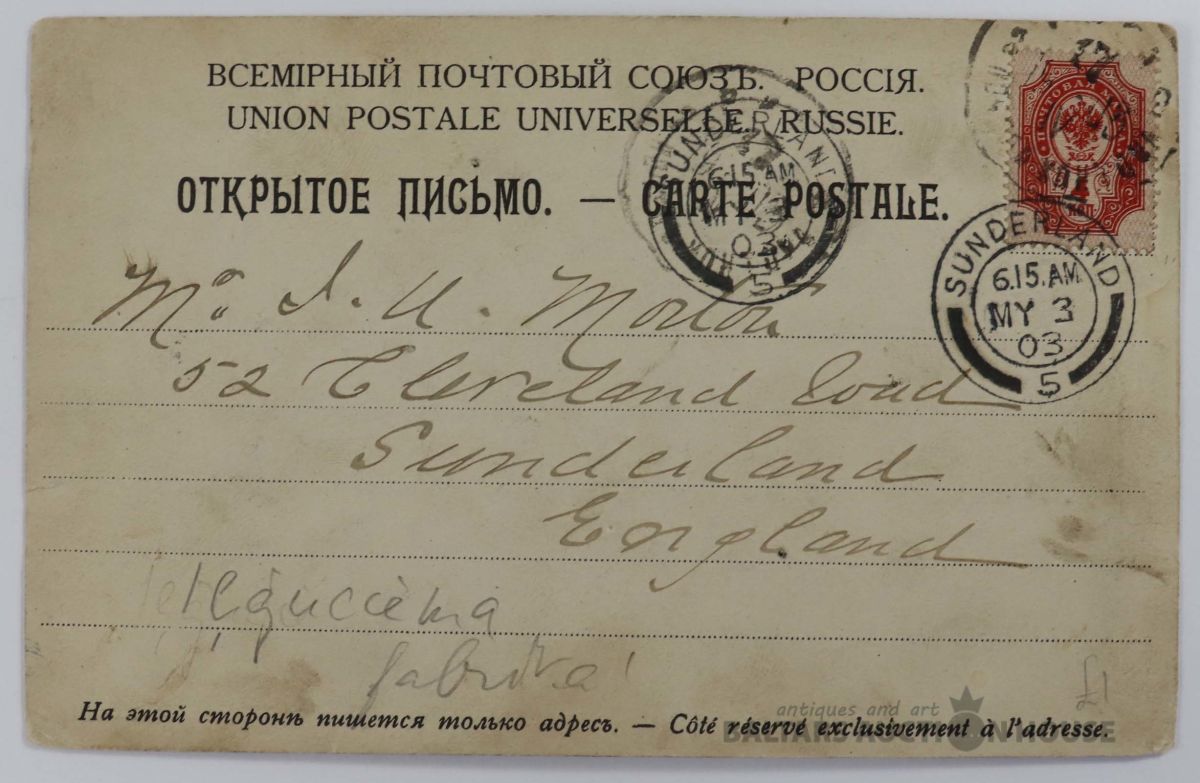 ВСЕМІРНЫЙ ПОЧТОВЫЙ СОЮЗЪ. РОССІЯ.
UNION POSTALE UNIVERSELLE. RUSSIE.
ОТКРЫТОЕ ПИСЬМО. — CARTE POSTALE.
ПОЧТОВАЯ МАРКА
SUNDERLAND
6.15 AM
MY 3
03
5
SUNDERLAND
6.15.AM
MY 3
03
5
Morton
52 Cleveland Road
Sunderland
England
fabrika
£1
На этой сторонѣ пишется только адресъ. — Côté réservé exclusivement à l'adresse.
antiques and art
BALTARS AUCTION HOUSE